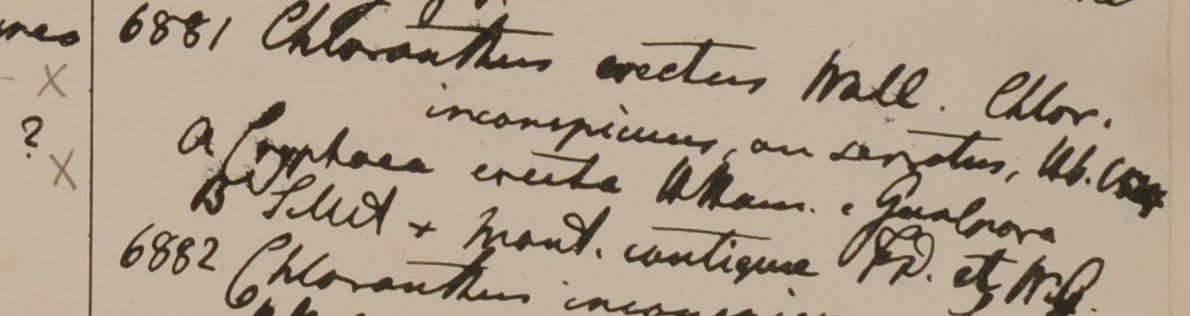 6881 Chloranthus erectus Wall. Chlor.
inconspicuus, an serratus, Hb.
A Cryphaea erecta HHam. e Gualpara
B Silhet + mont. contiguae FD. et W.G.
6882 Chloranthus
?
X
X